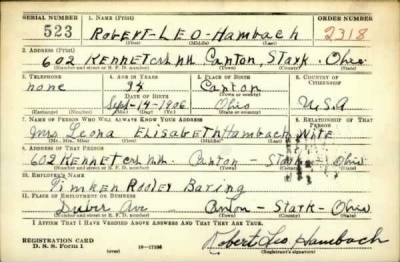 SERIAL NUMBER 1. NAME (Print) ORDER NUMBER
523 Robert - LEO - Hambach 2318
(First) (Middle) (Last)
2. ADDRESS (Print)
602 Kennet Canton, Stark. Ohio
(Number and street or R. F. D. number) (Town) (County) (State)
3. TELEPHONE 4. AGE IN YEARS 5. PLACE OF BIRTH 6. COUNTRY OF CITIZENSHIP
none 34 Canton
DATE OF BIRTH (Town or county)
Sept-14-1906 Ohio U.S.A
(Exchange) (Number) (Mo.) (Day) (Yr.) (State or country)
7. NAME OF PERSON WHO WILL ALWAYS KNOW YOUR ADDRESS 8. RELATIONSHIP OF THAT PERSON
Mrs Leona Elisabeth Hambach Wife
(Mr., Mrs., Miss) (First) (Middle) (Last)
9. ADDRESS OF THAT PERSON
602 Kennet Canton - Stark - Ohio
(Number and street or R. F. D. number) (Town) (County) (State)
10. EMPLOYER'S NAME
Timken Rooler Baring
11. PLACE OF EMPLOYMENT OR BUSINESS
Dueber Ave Canton - Stark - Ohio
(Number and street or R. F. D. number) (Town) (County) (State)
I AFFIRM THAT I HAVE VERIFIED ABOVE ANSWERS AND THAT THEY ARE TRUE.
REGISTRATION CARD
D. S. S. Form 1 (over) 16-17105 Robert Leo Hambach
(Registrant's signature)